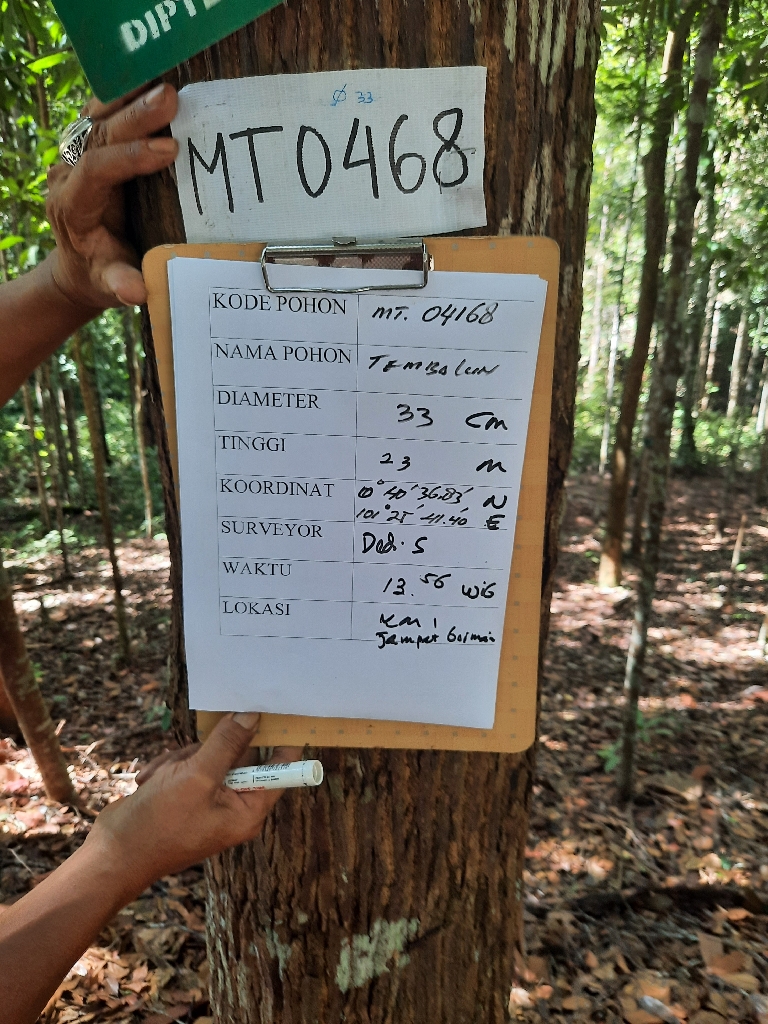 DIPTE
Ø 33
MT0468
KODE POHON MT. 04168
NAMA POHON TEMBALUN
DIAMETER 33 cm
TINGGI 23 M
KOORDINAT 0° 40' 36.83' N
101° 25' 41.40 E
SURVEYOR Dedi. S
WAKTU 13.56 WIB
LOKASI KM 1